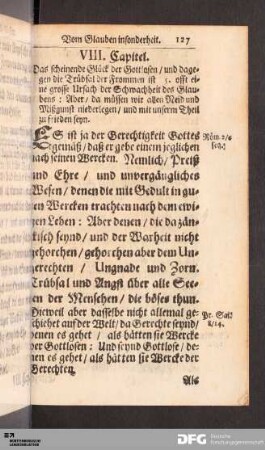 Vom Glauben insonderheit. 127
VIII. Capitel.
Das scheinende Glück der Gottlosen / und dage-
gen die Trübsal der Frommen ist 3. offt ein
eine grosse Ursach der Schwachheit des Glau-
bens: Aber / da müssen wir allen Neid und
Mißgunst niederlegen / und mit unserm Theil
zu frieden seyn.
ES ist ja der Gerechtigkeit Gottes
gemäß / daß er gebe einem jeglichen
nach seinen Wercken. Nemlich / Preiß
und Ehre / und unvergängliches
Wesen / denen die mit Gedult in gu-
ten Wercken trachten nach dem ewi-
gen Leben: Aber denen / die da zän-
kisch seynd / und der Warheit nicht
gehorchen / gehorchen aber dem Un-
gerechten / Ungnade und Zorn.
Trübsal und Angst über alle See-
len der Menschen / die böses thun.
Dieweil aber dasselbe nicht allemal ge-
schiehet auf der Welt / da Gerechte seynd /
denen es gehet / als hätten sie Wercke
der Gottlosen: Und seynd Gottlose / de-
nen es gehet / als hätten sie Wercke der
Gerechten
Als
Röm. 2/6
seq.
Pr. Sal.
8/14.
DFG